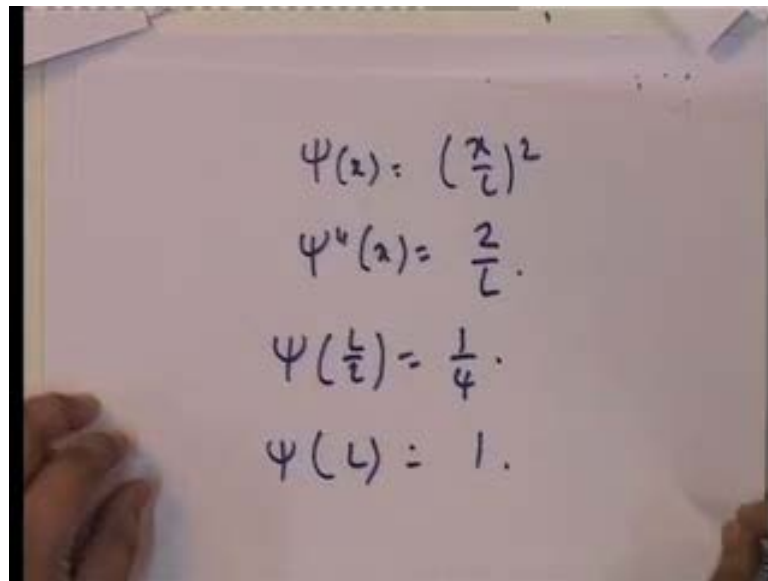 ψ(x) = (x/L)²
ψ"(x) = 2/L.
ψ(L/2) = 1/4.
ψ(L) = 1.